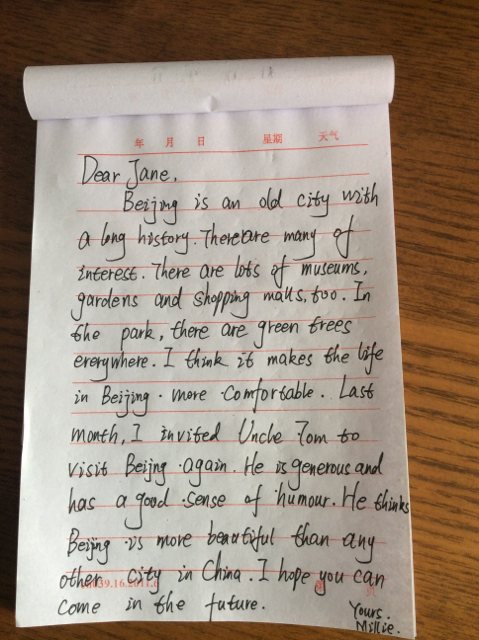 年 月 日 星期 天气
Dear Jane,
Beijing is an old city with
a long history. There are many of
interest. There are lots of museums,
gardens and shopping malls, too. In
the park, there are green trees
ererywhere. I think it makes the life
in Beijing more comfortable. Last
month, I invited Uncle Tom to
visit Beijng again. He is generous and
has a good sense of humour. He thinks
Beijing is more beautiful than any
other city in China. I hope you can
come in the future.
Yours.
Millie.